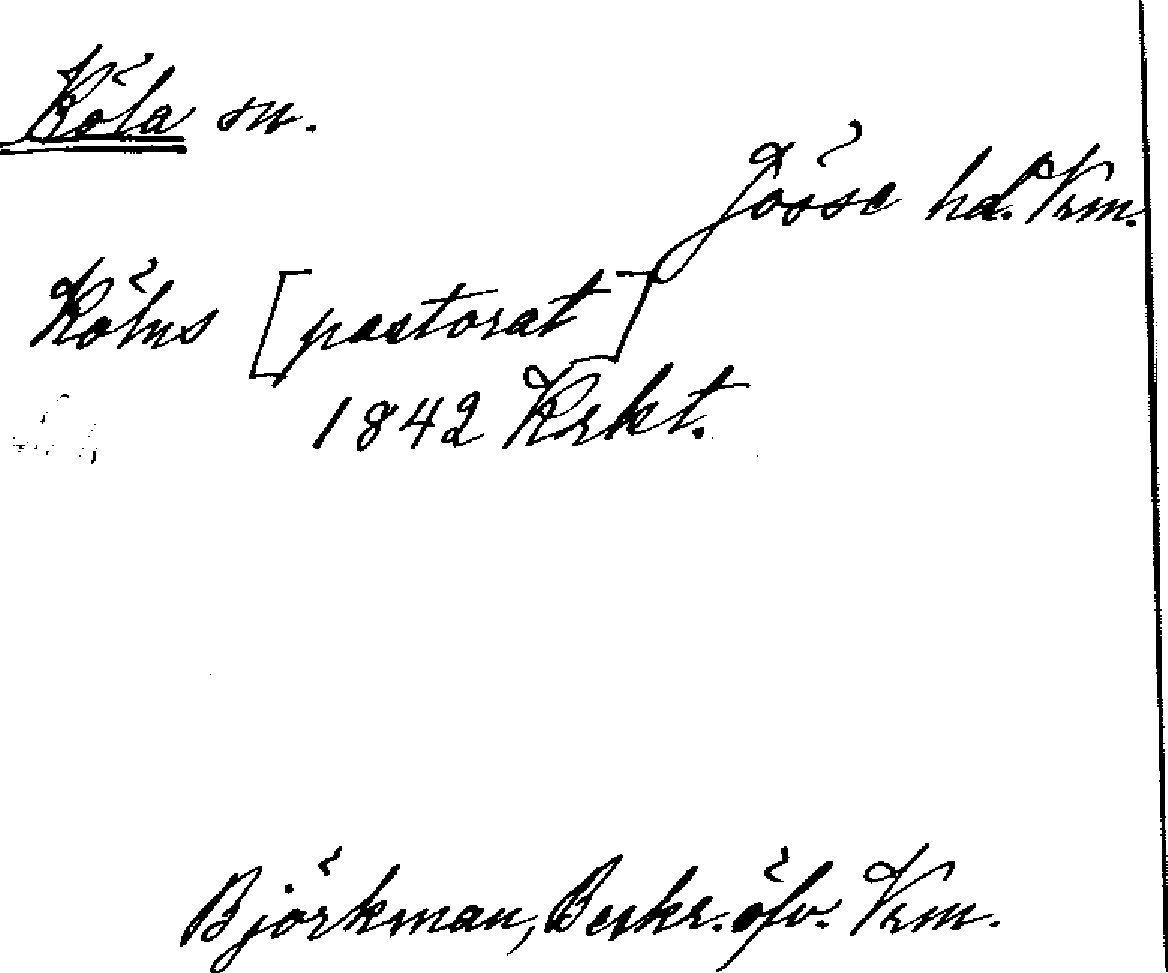 Köla sn.
Jösse hd. Vrm.
Köhns [pastorat]
1842 Krkt.
Björkman, Beskr. öfv. Vrm.